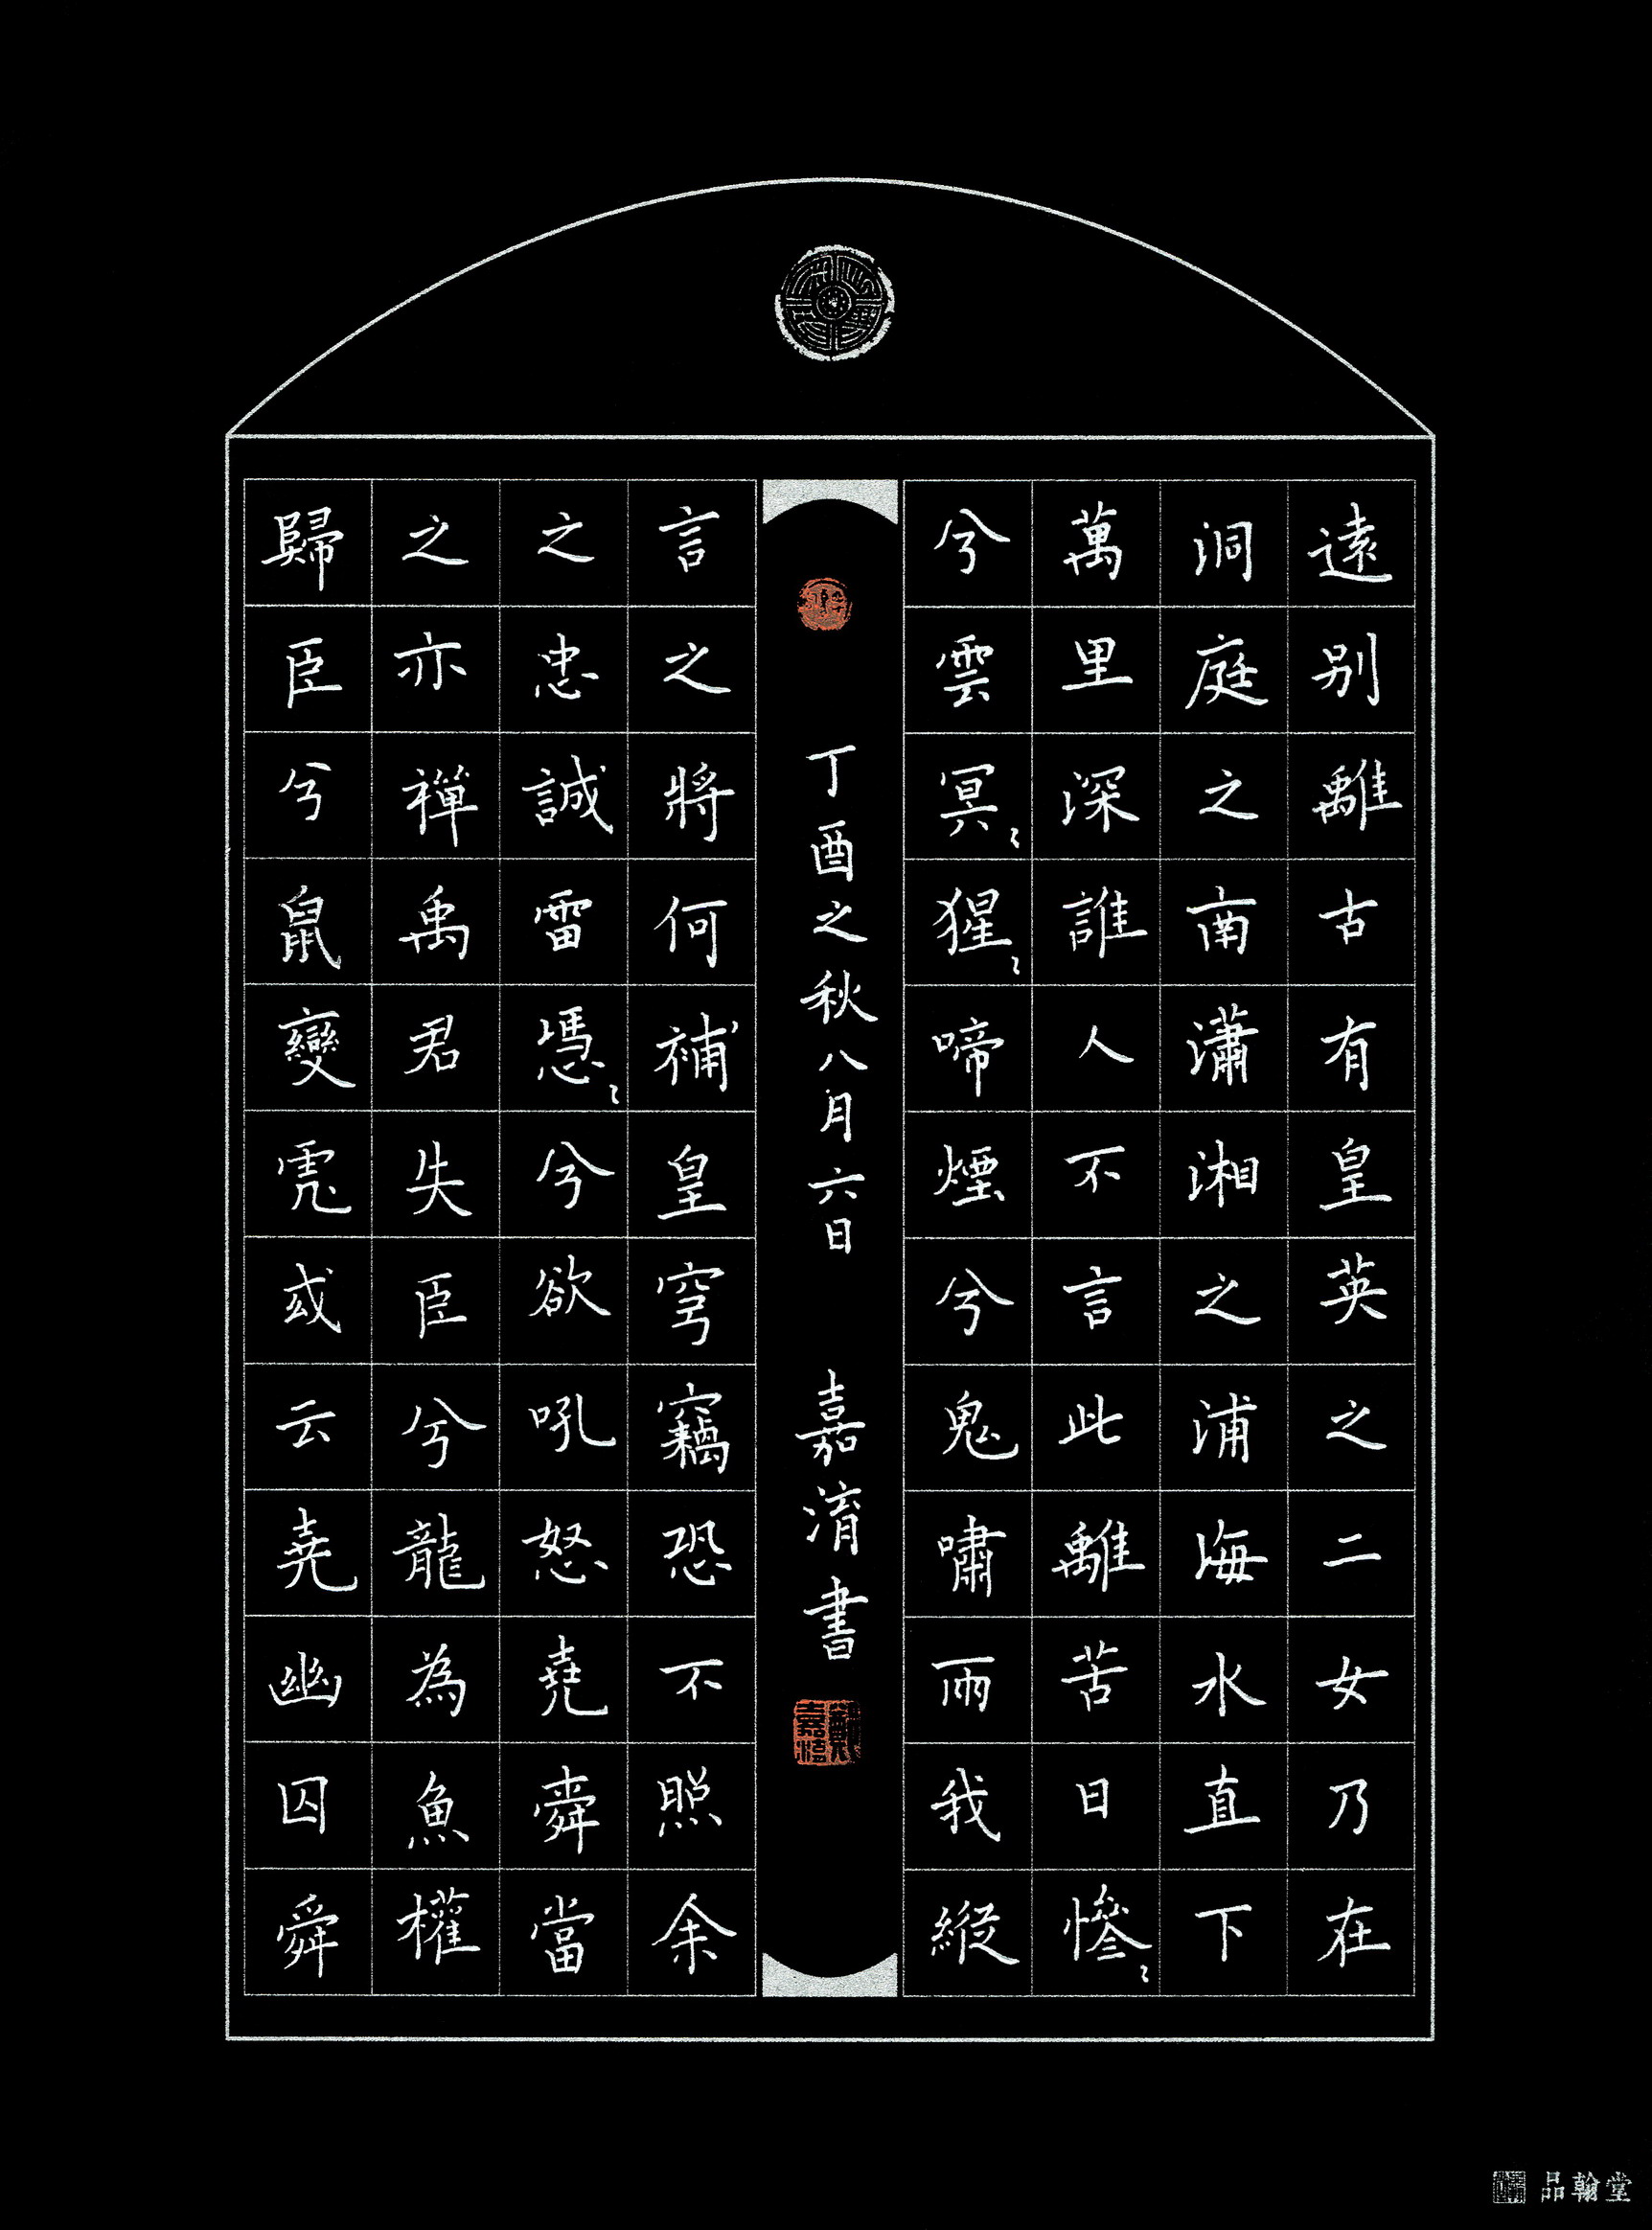 遠别離古有皇英之二女乃在
洞庭之南瀟湘之浦海水直下
萬里深誰人不言此離苦日慘〻
兮雲冥〻猩〻啼煙兮鬼嘯雨我縱
丁酉之秋八月六日 嘉淯書
言之將何補皇穹竊恐不照余
之忠誠雷憑〻兮欲吼怒堯舜當
之亦禪禹君失臣兮龍為魚權
歸臣兮鼠變虎或云堯幽囚舜
品翰堂